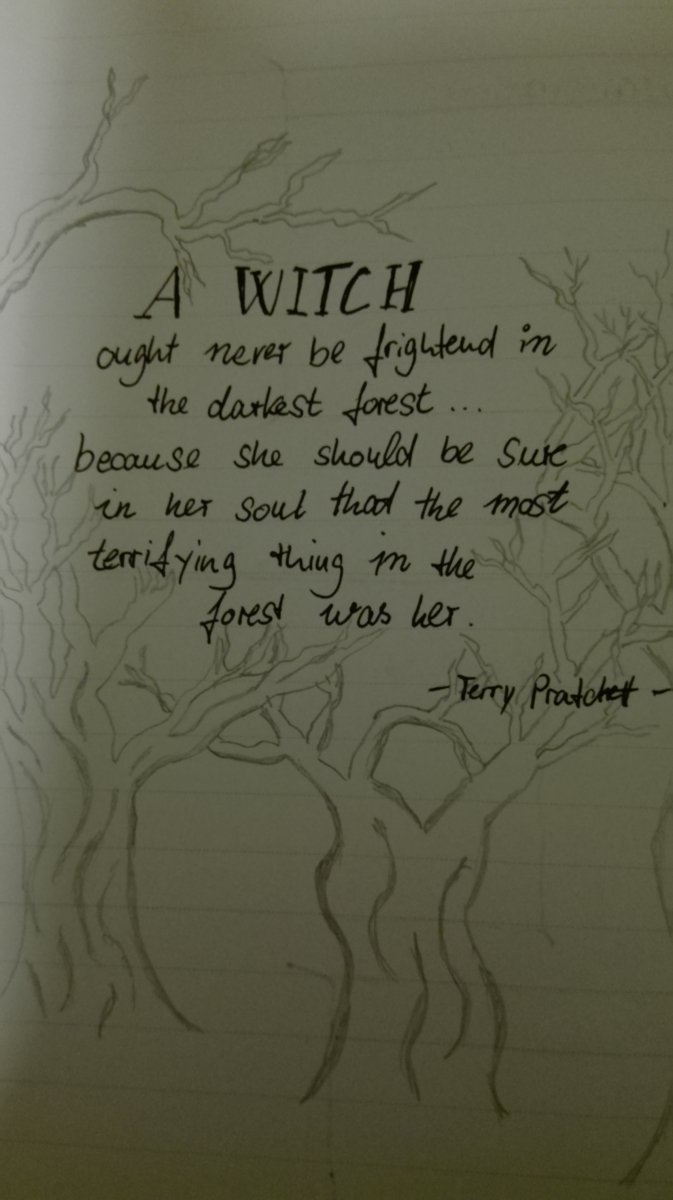 A WITCH
ought never be frightend in
the darkest forest ...
because she should be sure
in her soul that the most
terrifying thing in the
forest was her.
- Terry Pratchett -